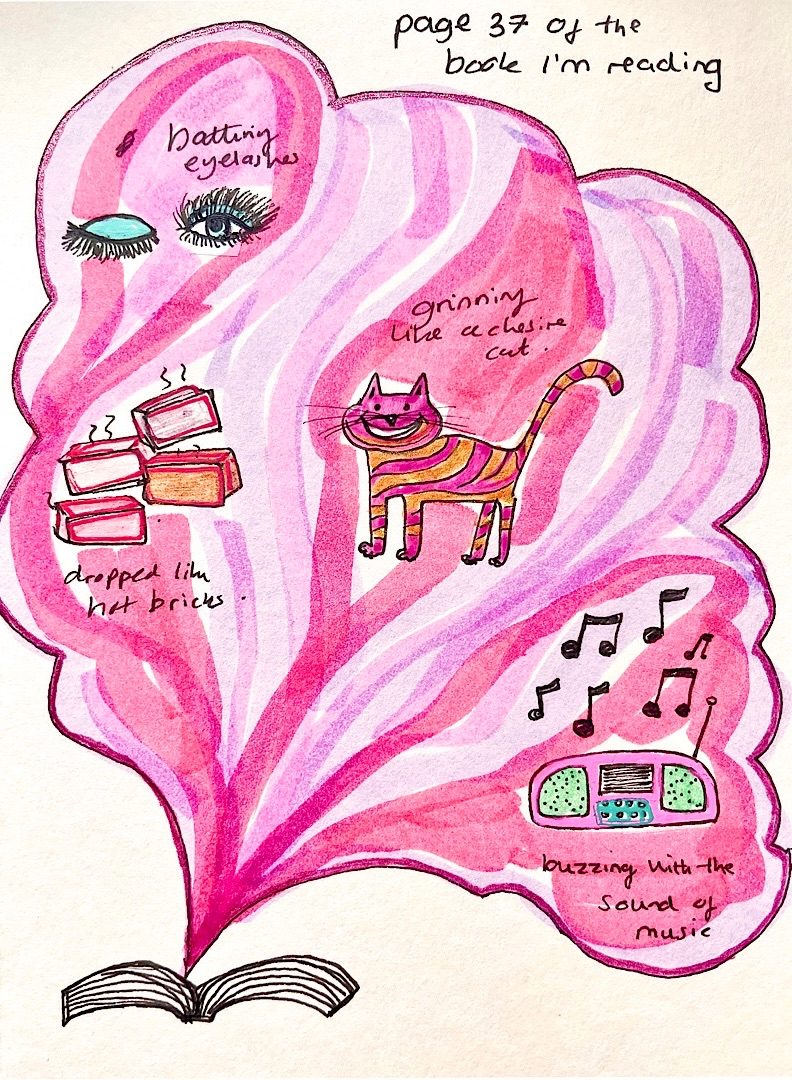 page 37 of the
book I'm reading
batting
eyelashes
grinning
like a chesire
cat.
dropped like
hot bricks.
buzzing with the
sound of
music